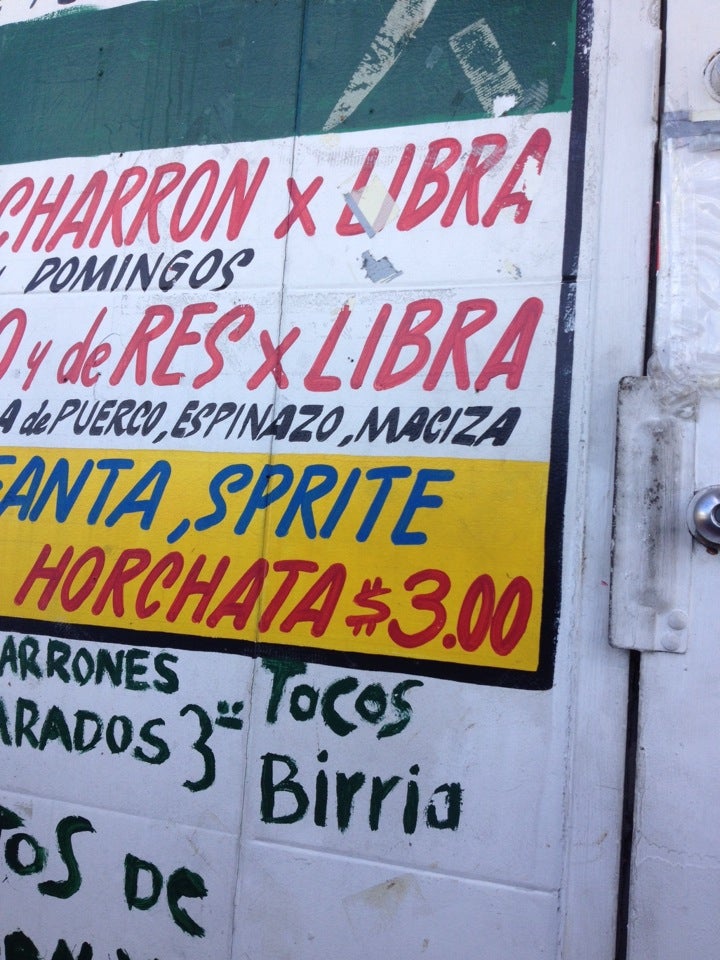 CHARRON x LIBRA
DOMINGOS
O y de RES x LIBRA
A de PUERCO, ESPINAZO, MACIZA
FANTA, SPRITE
HORCHATA $3.00
ARRONES
ARADOS 3
TOCOS
Birria
TOS DE